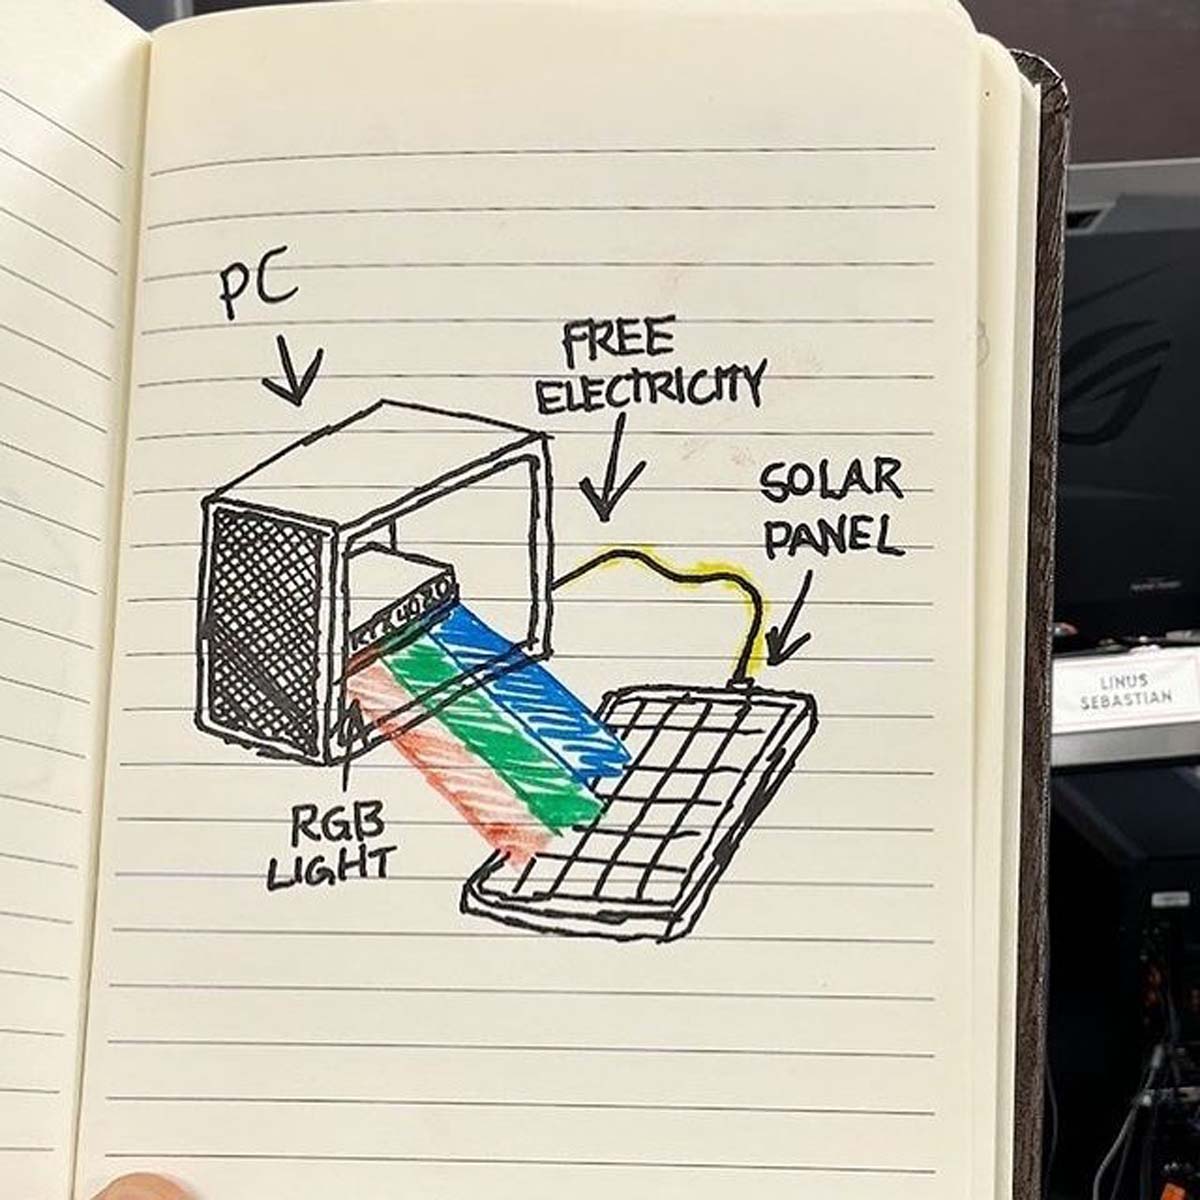 PC
FREE
ELECTRICITY
SOLAR
PANEL
RTX 4020
RGB
LIGHT
LINUS
SEBASTIAN